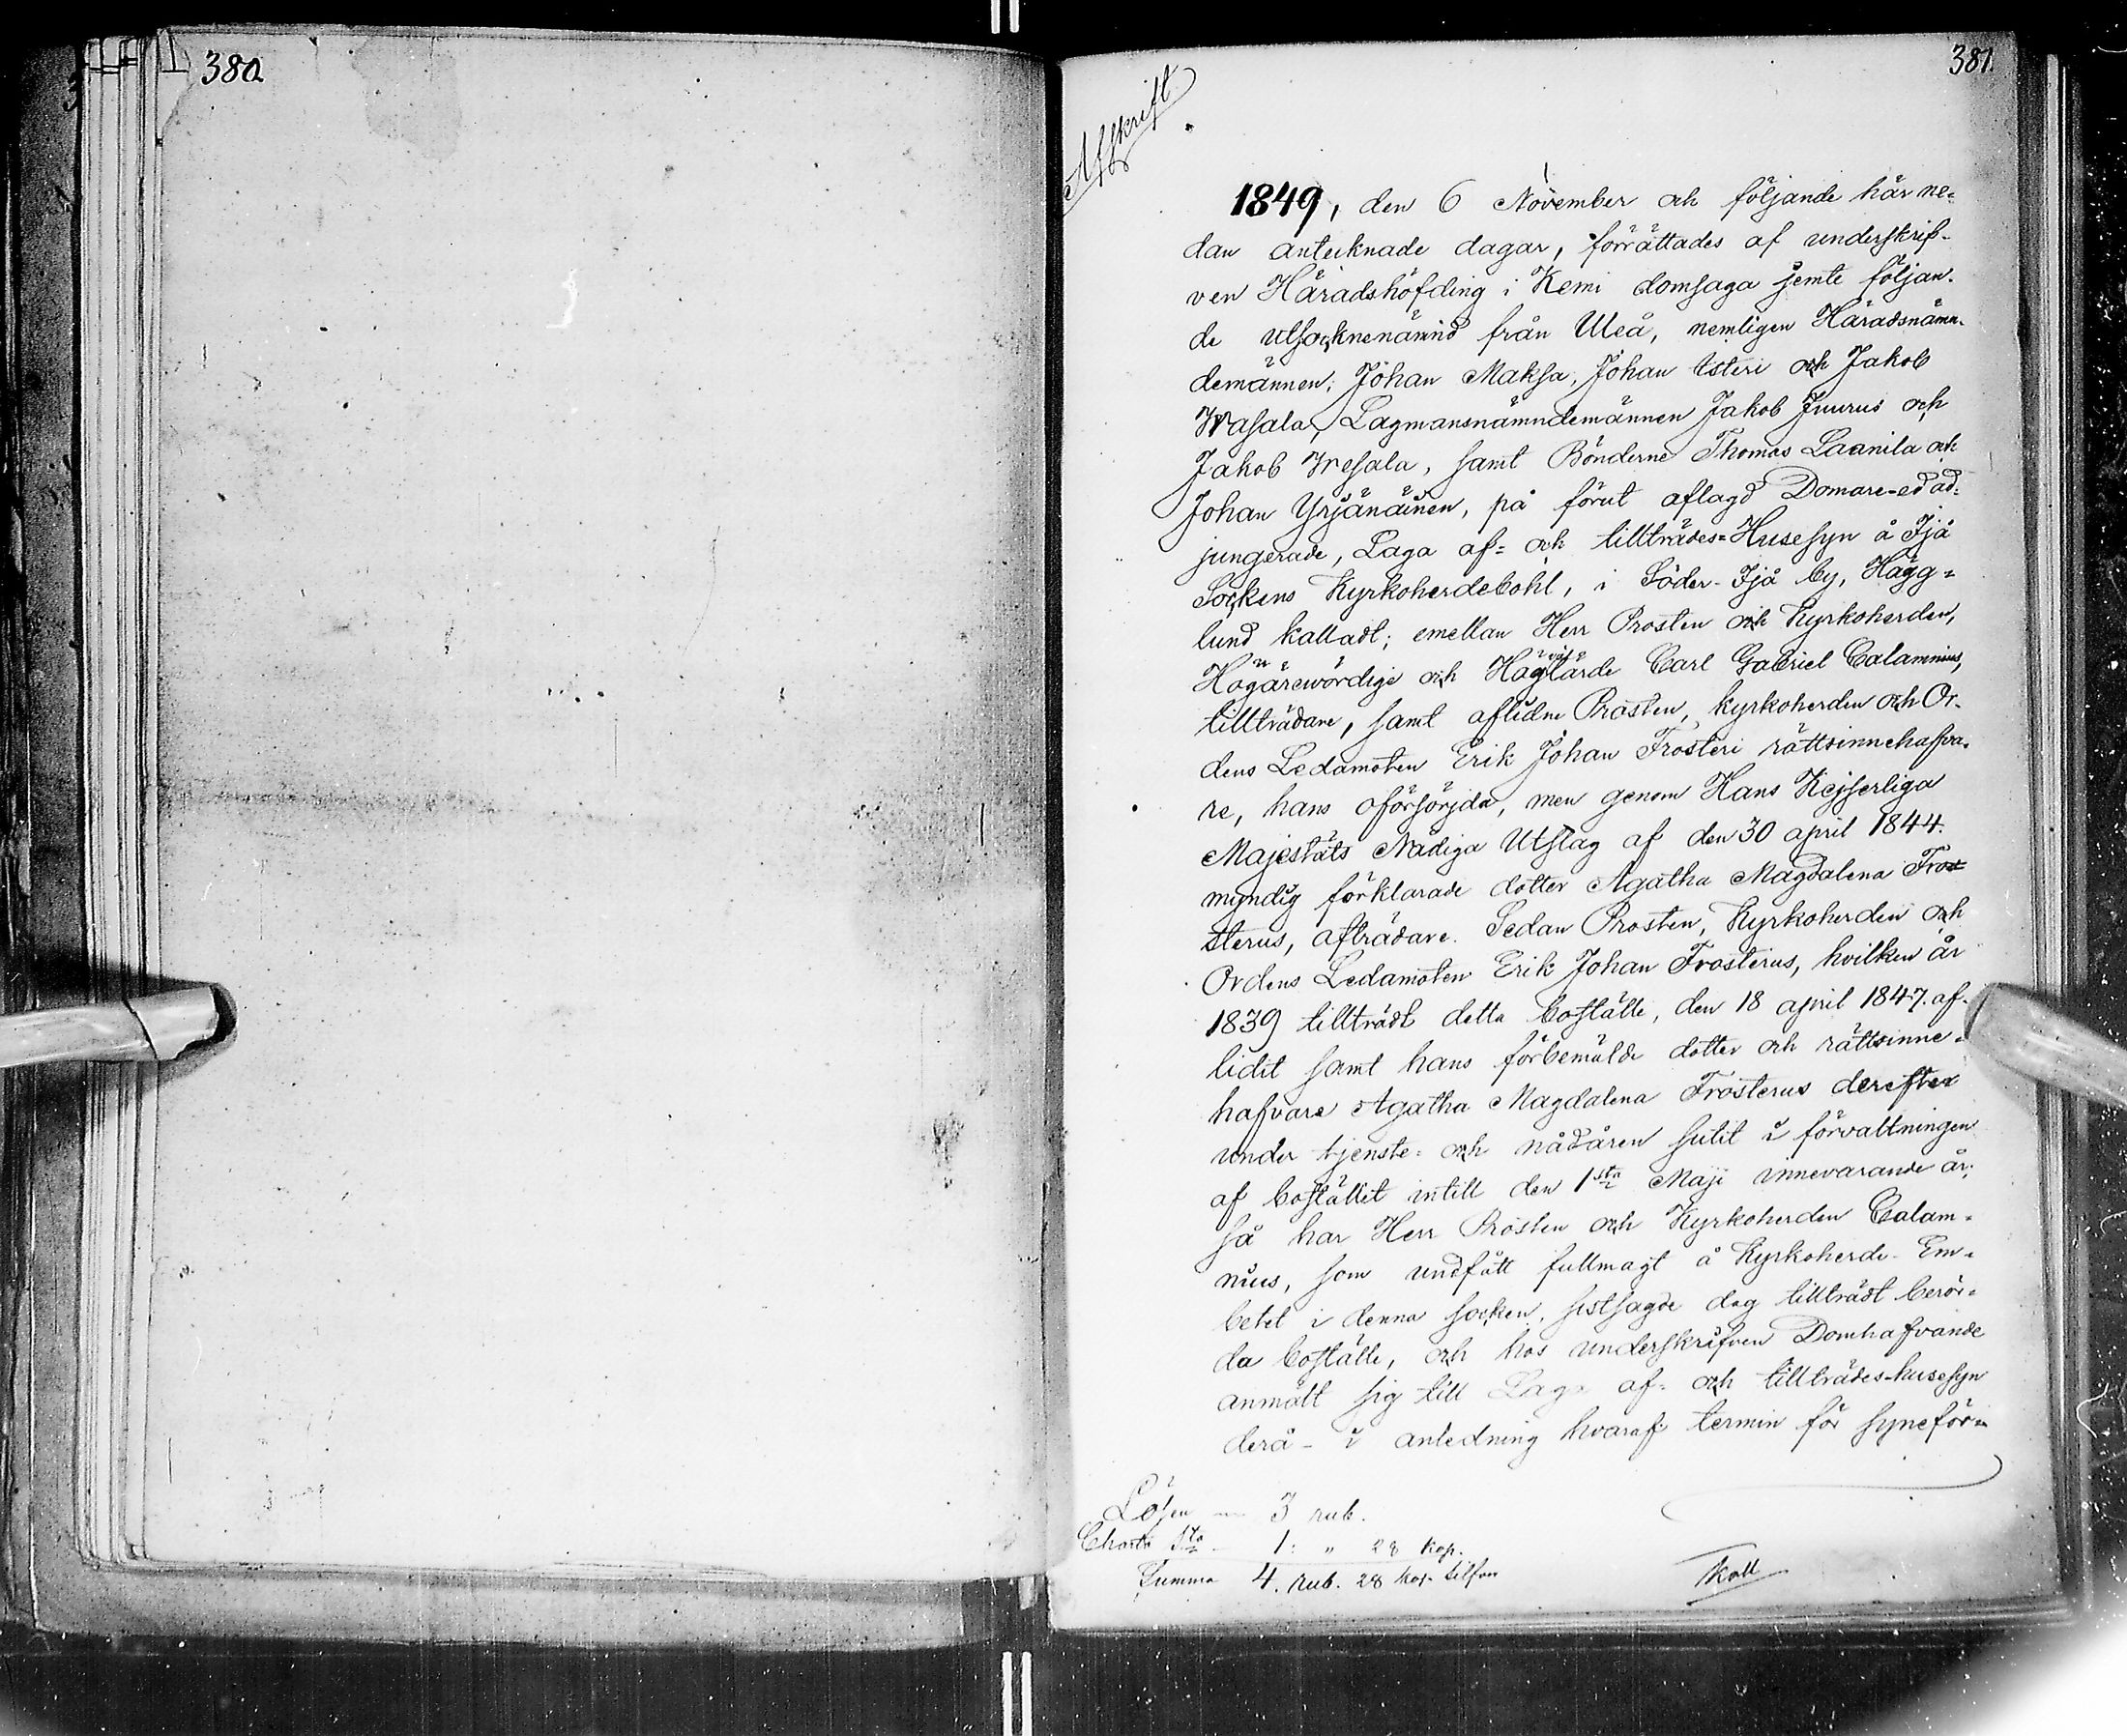 380.
381.
Afskrift.
1849, den 6 November och följande här ne=
dan antecknade dagar, förrättades af underskrif-
ven Häradshöfding i Kemi domsaga jemte följan-
de utsocknenämnd från Uleå, nemligen Häradsnämn-
demännen; Johan Maksa, Johan Isteri och Jakob
Wasala, Lagmansnämndemännen Jakob Juurus och
Jakob Wesala, samt Bönderne Thomas Laanila och
Johan Yrjänäinen, på förut aflagd Domare-ed ad=
jungerade, Laga af= och tillträdes=Husesyn å Ijå
Sockens Kyrkoherdebohl, i Söder-Ijå by, Hägg=
lund kalladt; emellan Herr Prosten och Kyrkoherden,
Högärewördige och Höglärde Carl Gabriel Calamnius,
tillträdare, samt aflidne Prosten, kyrkoherden och Or-
dens Ledamoten Erik Johan Frosteri rättsinnehafva-
re, hans oförsörjda, men genom Hans Kejserliga
Majestäts Nådiga Utslag af den 30 april 1844.
myndig förklarade dotter Agatha Magdalena Fros
terus, afträdare. Sedan Prosten, Kyrkoherden och
Ordens Ledamoten Erik Johan Frosterus, hvilken år
1839 tillträdt detta boställe, den 18 april 1847. af-
lidit samt hans förbemälde dotter och rättsinne-
hafvare Agatha Magdalena Frosterus derefter
under tjenste- och nådåren sutit i förvaltningen
af bostället intill den 1sta Maji innevarande år;
så har Herr Prosten och Kyrkoherden Calam-
nius, som undfått fullmagt å Kyrkoherde-Em-
betet i denna socken, sistsagde dag tillträdt berör-
da boställe, och hos underskrifven Domhafvande
anmält sig till Laga af- och tillträdes-husesyn
derå - i anledning hvaraf termin för syneför=
Lösen — 3 rub.
Charta Sta - 1: " 28 kop.
Summa 4. rub. 28 kop. silfver